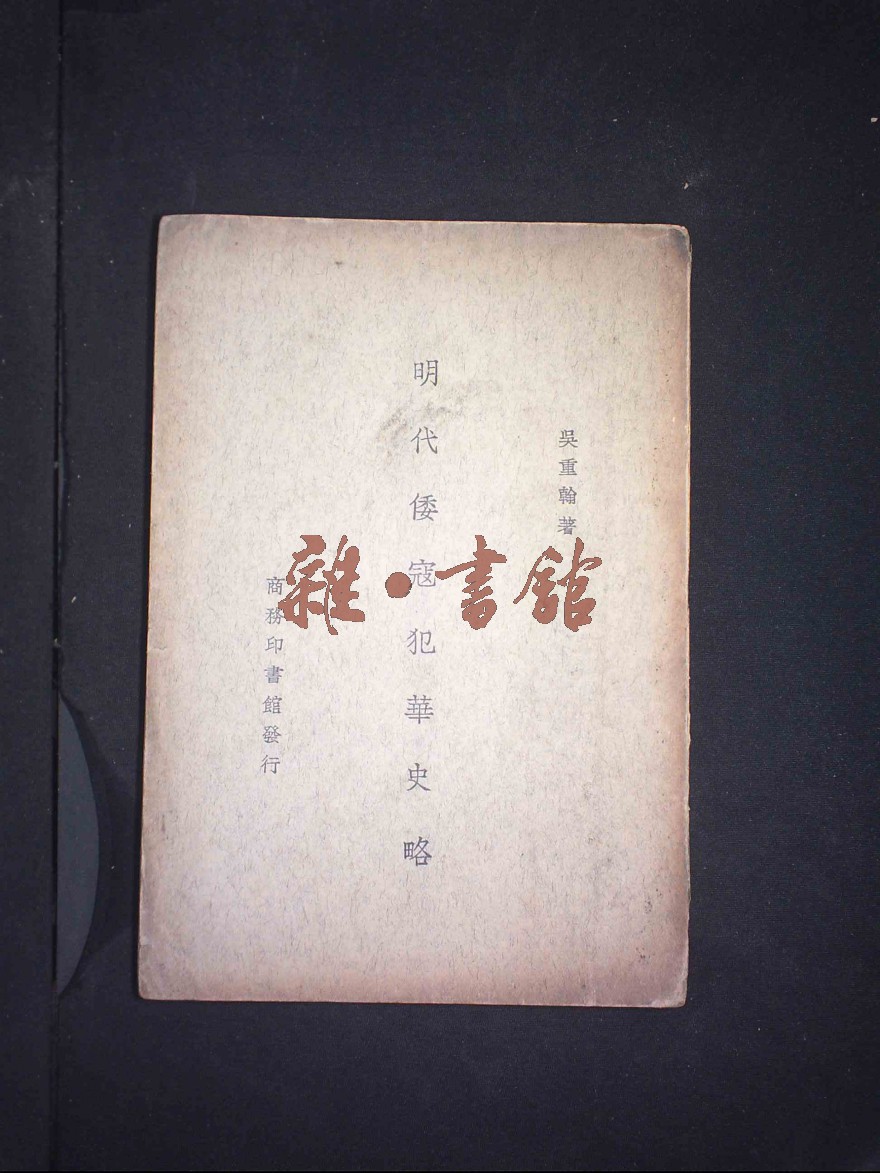 吳重翰著
明代倭寇犯華史略
商務印書館發行
雜·書館